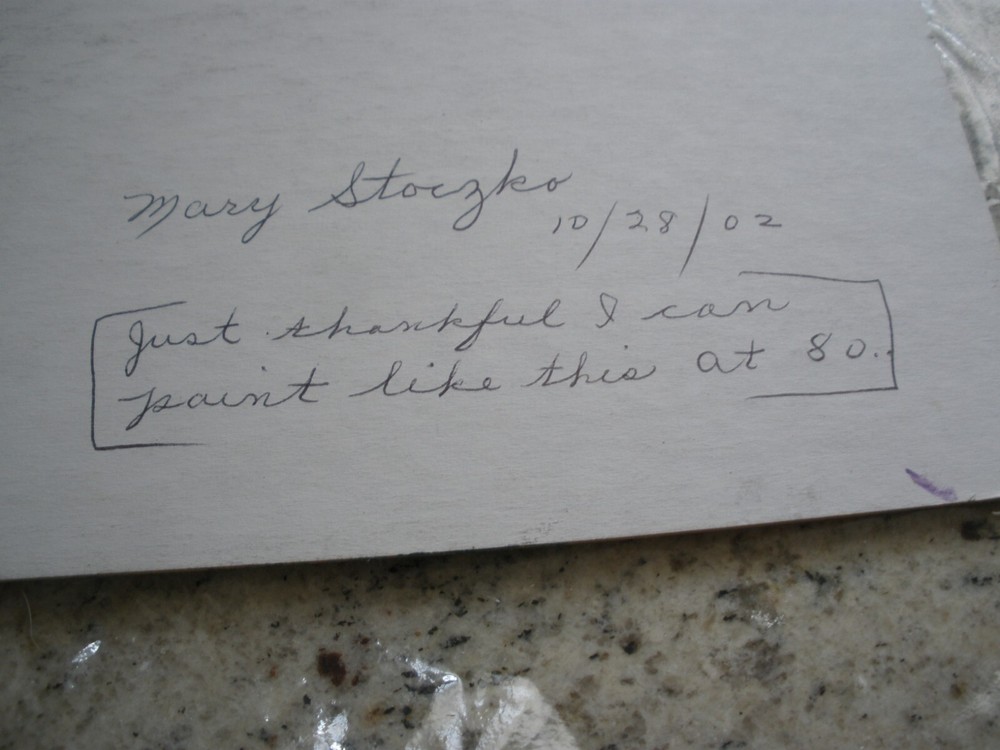 Mary Stoczko
10/28/02
Just thankful I can
paint like this at 80.